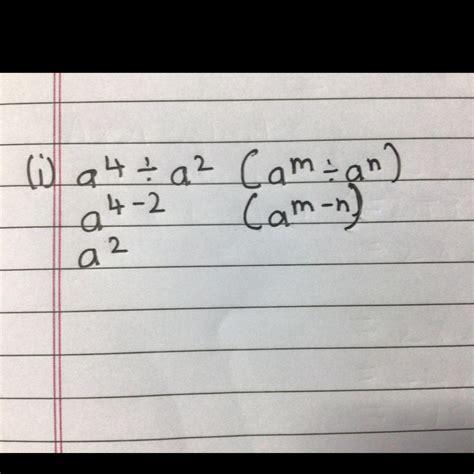 (i) a⁴ ÷ a² (aᵐ ÷ aⁿ)
a⁴⁻² (aᵐ⁻ⁿ)
a²